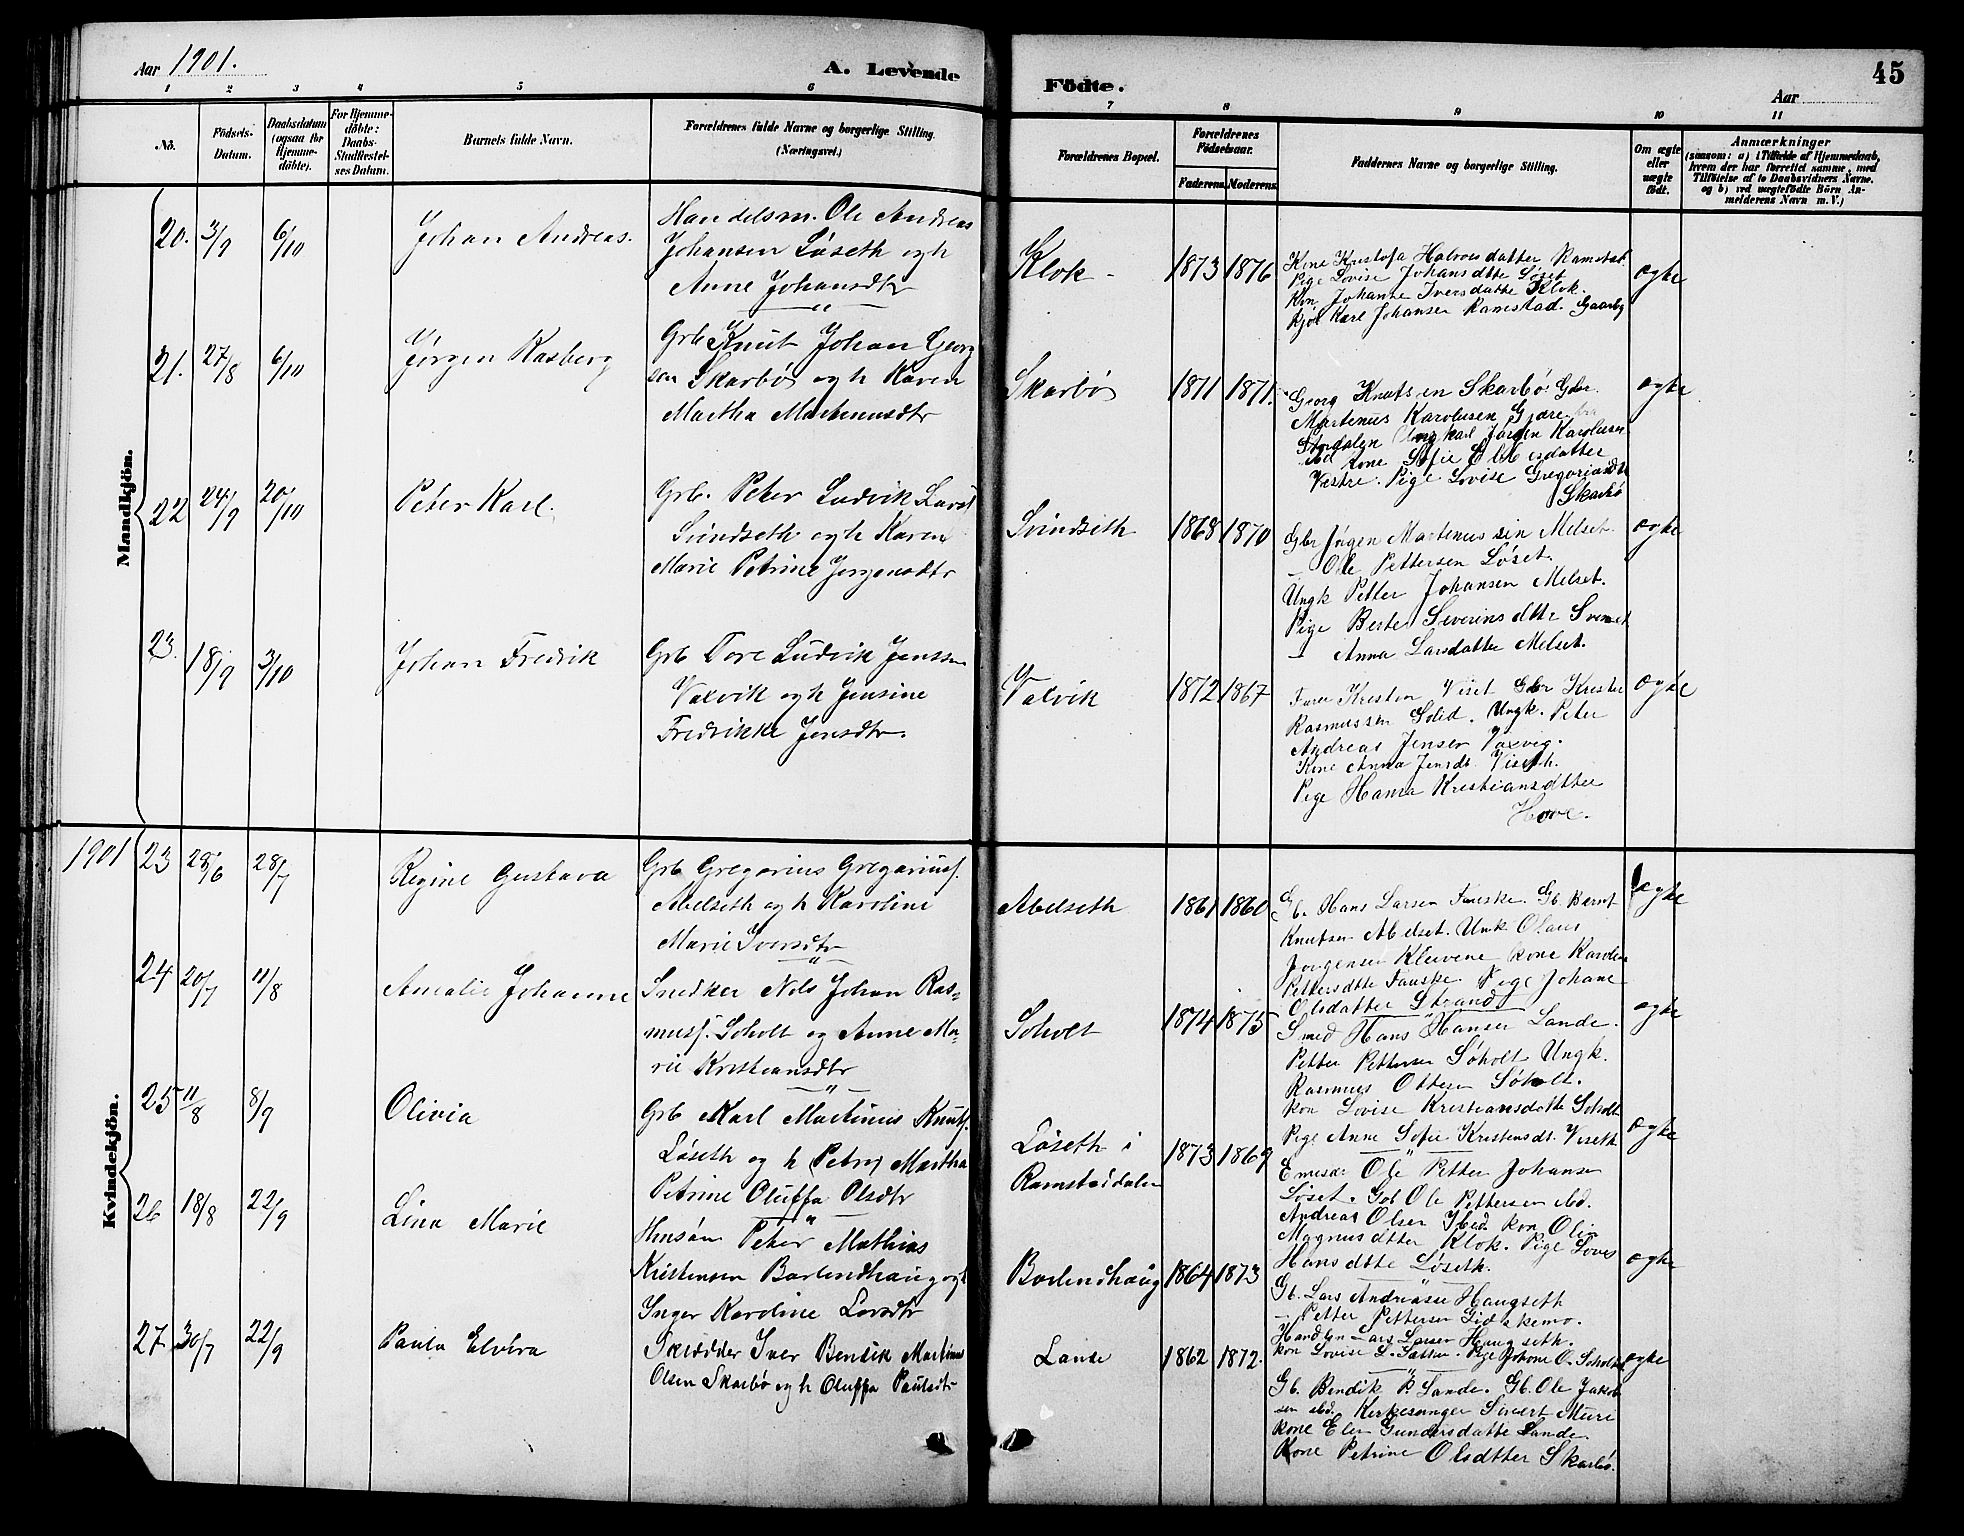 Aar 1901.
A. Levende
Födte.
45
Aar
1 2 3 4 5 6 7 8 9 10 11
No.
Födsels-Datum.
Daabsdatum (ogsaa for Hjemmedöbte).
For Hjemmedöbte: Daabs-Stadfæstelses Datum.
Barnets fulde Navn.
Forældrenes fulde Navne og borgerlige Stilling. (Næringsvei.)
Forældrenes Bopæl.
Forældrenes Födselsaar.
Faderens. Moderens.
Faddernes Navne og borgerlige Stilling.
Om ægte eller uægte födt.
Anmærkninger
(saasom: a) i Tilfælde af Hjemmedaab, hvem der har forrettet samme, med Tilföielse af to Daabsvidners Navne. og b) ved uægtefödte Börn Anmelderens Navn m. V.)
Mandkjön.
20. 3/9 6/10 Johan Andreas.
Handelsm. Ole Andreas
Johansen Løseth og h
Anne Johansdtr
Klok - 1873 1876
Kone Kristofa Halvorsdatter Ramstad.
Pige Lovise Johansdtte Løset
Kon Johanne Iversdatte Klok.
Karl Johansen Ramstad. Gaarbg
ægte
21. 27/8 6/10 Jørgen Kasberg
Grb Knut Johan Georg
sen Skarbø og h Karen
Martha Martinusdtr
Skarbø 1871 1871.
Georg Knutsen Skarbø Gbr.
Martenus Karolusen Gjære fra
Stordalen Ungkarl Jørgen Karolusen
ibd kone Sofie Ellesdatter
Vestre. Pige Lovise Gregoriusdtr
Skarbø
ægte
22 24/9 20/10 Peter Karl.
Grb. Peter Ludvik Larss
Svindseth og h Karen
Marie Petrine Jørgensdtr
Svindseth 1868 1870
Gbr Jörgen Martenussen Melset.
- Ole Pettersen Løset.
Ungk Petter Johansen Melset.
Pige Berte Severinsdtte Svenset
- Anna Larsdatte Melset.
ægte
23. 18/9 3/10 Johan Fredrik
Grb Tore Ludvik Jenssen
Vaxvik og h Jensine
Fredrikke Jensdtr.
Vaxvik 1872 1867
Kristen Viset Gbr Krister
Rasmussen Solid. Ungk. Peter
Andreas Jensen Vaxvig.
Kone Anna Jensdt. Viseth.
Pige Hanna Kristiansdtter
Hove.
ægte
Kvindekjön.
1901 23 23/6 28/7 Regine Gustava
Grb Gregorius Gregoriuss.
Abelseth og h Karoline
Marie Iversdtr
Abelseth 1861 1860
Gb. Hans Larsen Fauske. Gb Bernt
Knutsen Abelset. Unk Olaus
Jørgensen Klevene kone Karolen
Pettersdtte Fauske Pige Johane
Olsdatter Strand
ægte
24 20/7 11/8 Amalie Johanne
Snedker Nils Johan Ras=
muss. Soholt og Anne Ma=
rie Kristiansdtr
Soholt 1874 1875
Smed Hans Hansen Lande.
Petter Pettersen Soholt Ungk.
Rasmus Ottesen Søholt.
kon Lovise Kristiansdatte Soholt
Pige Anne Sofie Kristensdt. Viseth
ægte
25 11/8 8/9 Olivia
Grb Karl Martinus Knuts.
Løseth og h Petra Martha
Petrine Oluffa Olsdtr
Løseth i
Ramstaddalen 1873 1869
Ole Petter Johansen
Løset. Gb Ole Pettersen ibd.
Andreas Olsen Ibid. kon Olin
Magnusdtter Klok. Pige Lovis
Hansdtte Løseth.
ægte
26 18/8 22/9 Lina Marie
Husm Peter Mathias
Kristensen Barlendhaug og h
Inger Karoline Larsdtr
Barlendhaug 1864 1873
Gb. Lars Andreasen Haugseth
- Petter Pettersen Lidskemo.
Handlm Lars Larsen Haugseth.
kon Lovise L. Sætter. Pige Johane O. Soholt
ægte
27 30/7 22/9 Paula Elvira
Skrædder Iver Bendik Martinus
Olsen Skarbø og h Oluffa Paulsdtr
Lande 1862 1872.
Gb. Bendik P. Lande. Gb. Ole Jakob
sen ibd. Kirkesanger Sivert Muri
kone Elen Gundersdatte Lande.
Kone Petrine Olsdtter Skarbø.
ægte